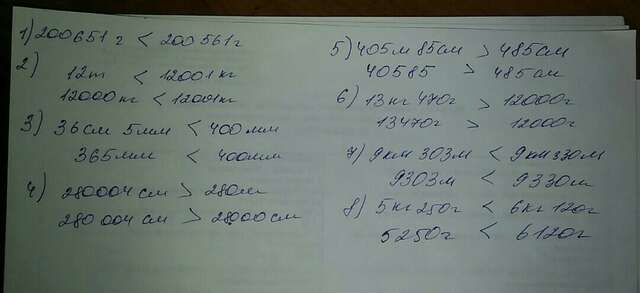 1) 200651 г < 200561 г
2)
12т < 12001 кг
12000 кг < 12001 кг
3) 36 см 5 мм < 400 мм
365 мм < 400 мм
4) 280004 см > 280 м
280 004 см > 28000 см
5) 405 м 85 см > 485 см
40585 > 485 см
6) 13 кг 470 г > 12000 г
13470 г > 12000 г
7) 9 км 303 м < 9 км 330 м
9303 м < 9330 м
8) 5 кг 250 г < 6 кг 120 г
5250 г < 6120 г